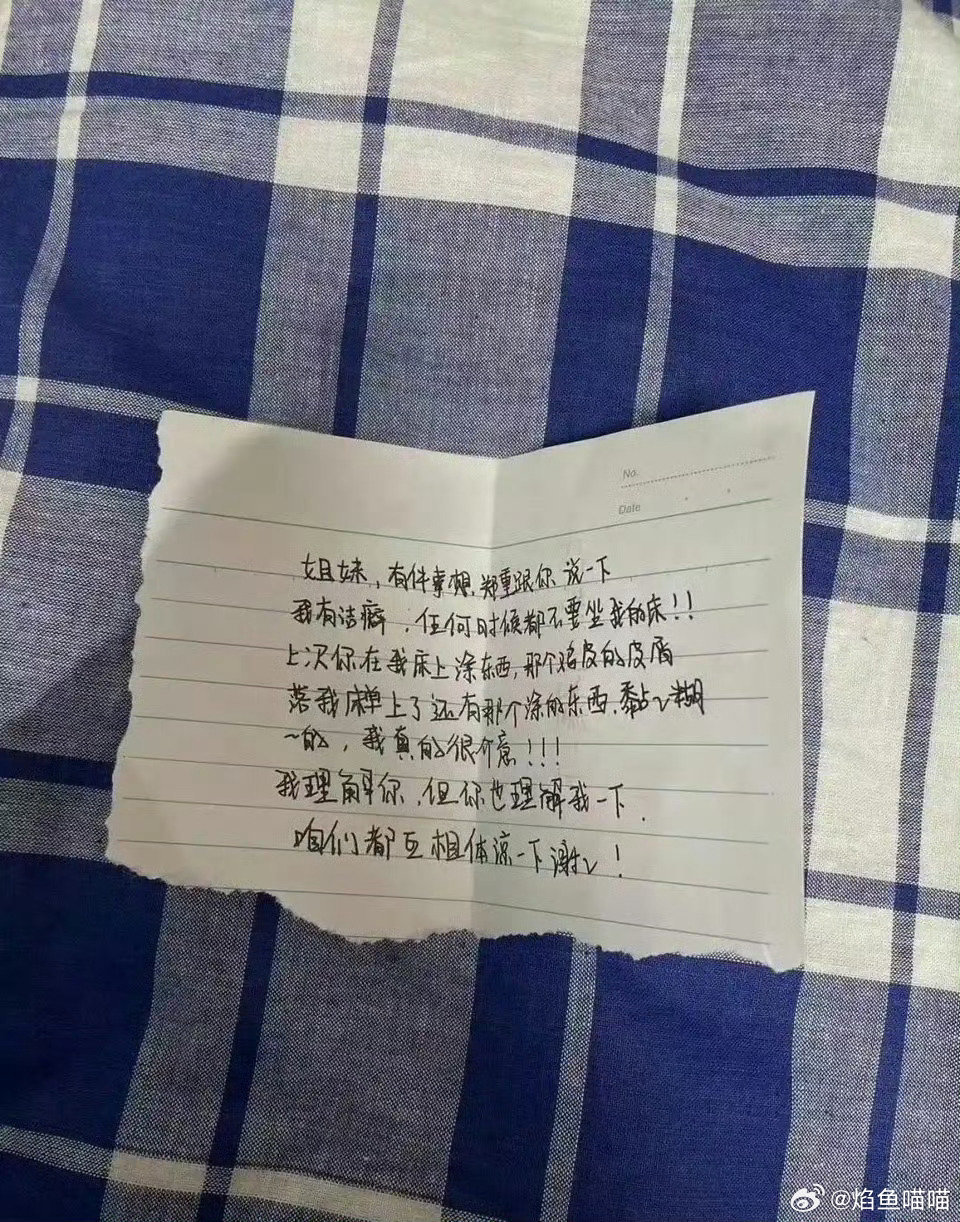 No.
Date
姐妹，有件事想郑重跟你说一下
我有洁癖，任何时候都不要坐我的床！！
上次你在我床上涂东西，那个鸡皮的皮屑
落我床单上了还有那个涂的东西，黏~糊
~的，我真的很介意！！！
我理解你，但你也理解我一下．
咱们都互相体谅一下谢~！
@焰鱼喵喵